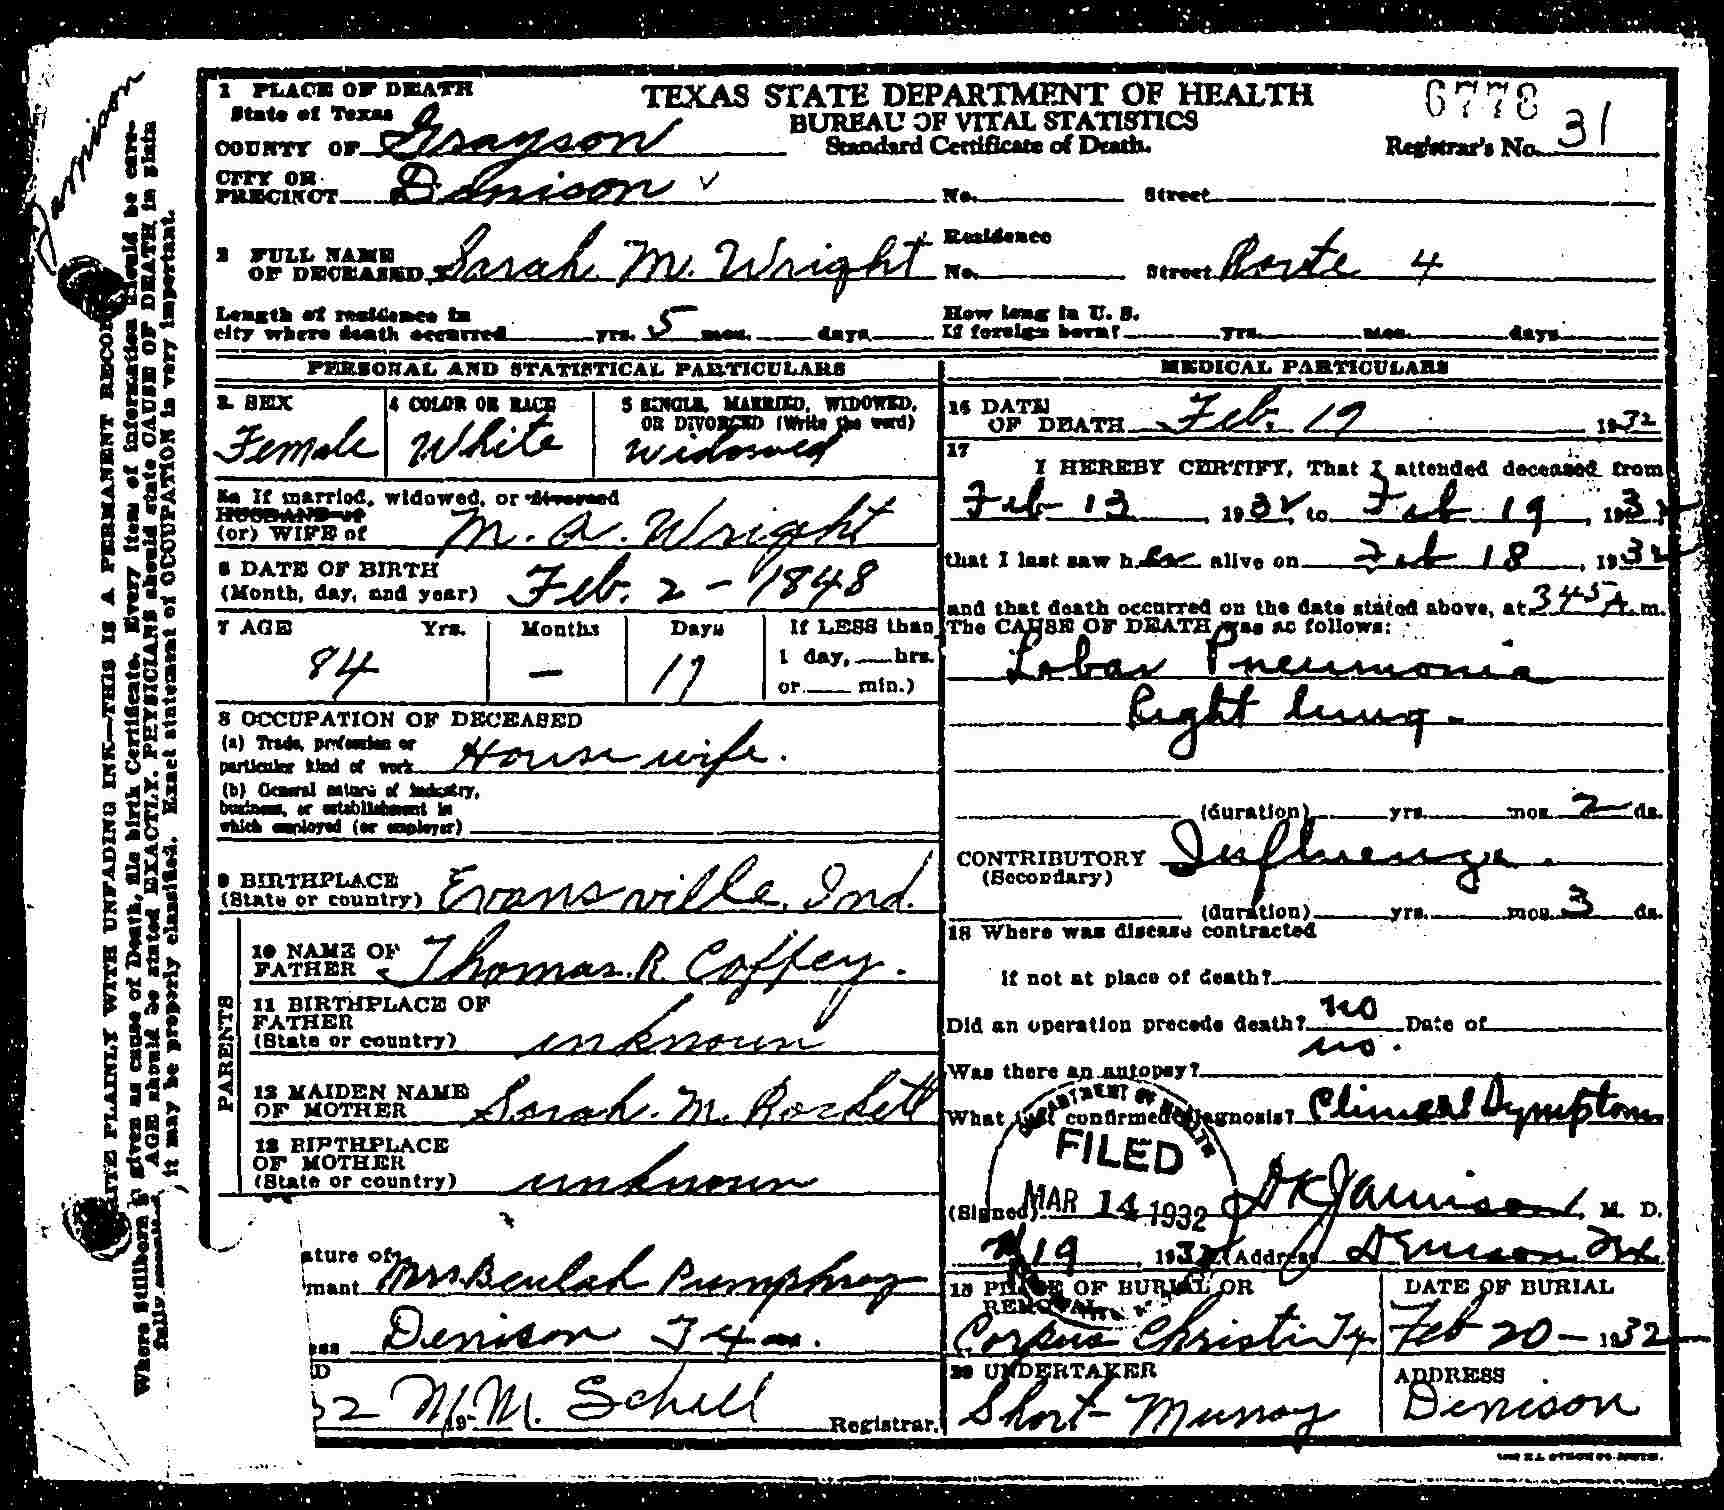 Jamison
WRITE PLAINLY WITH UNFADING INK—THIS IS A PERMANENT RECORD
Where Stillborn is given as cause of Death, file birth Certificate. Every item of information should be care-
fully AGE should be stated EXACTLY. PHYSICIANS should state CAUSE OF DEATH in plain
it may be properly classified. Exact statement of OCCUPATION is very important.
1 PLACE OF DEATH
State of Texas
TEXAS STATE DEPARTMENT OF HEALTH
BUREAU OF VITAL STATISTICS
Standard Certificate of Death.
6778
Registrar's No. 31
COUNTY OF Grayson
CITY OR PRECINCT Denison No. Street
2 FULL NAME OF DECEASED Sarah M. Wright Residence No. Street Route 4
Length of residence in city where death occurred yrs. 5 mos. days How long in U. S. If foreign born? yrs. mos. days
PERSONAL AND STATISTICAL PARTICULARS
3. SEX Female
4 COLOR OR RACE White
5 SINGLE, MARRIED, WIDOWED, OR DIVORCED (Write the word) widowed
5a If married, widowed, or divorced
HUSBAND of
(or) WIFE of M. A. Wright
6 DATE OF BIRTH
(Month, day, and year) Feb. 2 - 1848
7 AGE Yrs. Months Days If LESS than
84 — 17 1 day, hrs.
or min.)
8 OCCUPATION OF DECEASED
(a) Trade, profession or particular kind of work House wife.
(b) General nature of industry, business, or establishment in which employed (or employer)
9 BIRTHPLACE
(State or country) Evansville, Ind.
PARENTS
10 NAME OF FATHER Thomas. R. Coffey.
11 BIRTHPLACE OF FATHER
(State or country) unknown
12 MAIDEN NAME OF MOTHER Sarah. M. Rockett
13 BIRTHPLACE OF MOTHER
(State or country) unknown
ature of
mant Mrs Beulah Pumphrey
ess Denison Tex.
D
32 M. M. Schell 19 Registrar.
MEDICAL PARTICULARS
16 DATE OF DEATH Feb. 19 1932
17
I HEREBY CERTIFY, That I attended deceased from
Feb 13, 1932, to Feb 19, 1932
that I last saw her alive on Feb 18, 1932
and that death occurred on the date stated above, at 345 A. m.
The CAUSE OF DEATH was as follows:
Lobar Pneumonia
Right lung -
(duration) yrs. mos. 2 ds.
CONTRIBUTORY Influenza.
(Secondary)
(duration) yrs. mos. 3 ds.
18 Where was disease contracted
if not at place of death?
Did an operation precede death? no Date of
Was there an autopsy? no.
What test confirmed diagnosis? Clinical Symptoms
DEPARTMENT OF HEALTH
FILED
MAR 14 1932
(Signed) D K Jamison, M. D.
2/19, 1932 (Address Denison Tex.
19 PLACE OF BURIAL OR REMOVAL
Corpus Christi Tx
DATE OF BURIAL
Feb 20 - 1932
20 UNDERTAKER
Short-Murray
ADDRESS
Denison